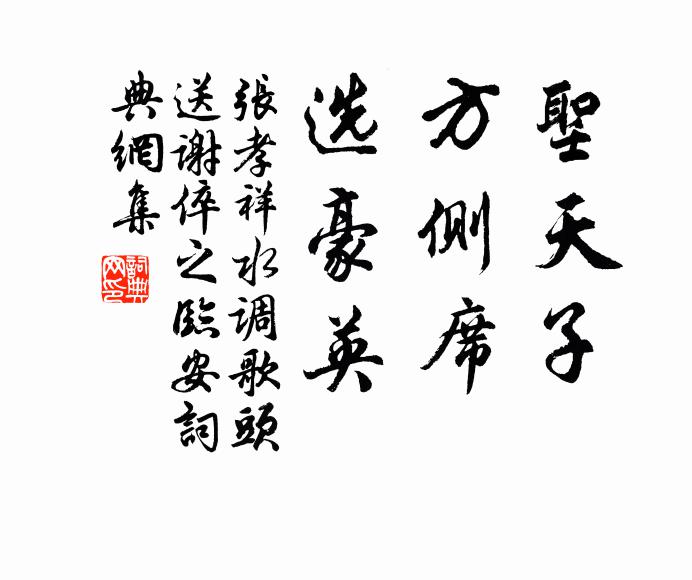 聖天子
方側席
选豪英
張孝祥水調歌頭
送謝倅之臨安詞
典網集
詞典
网印